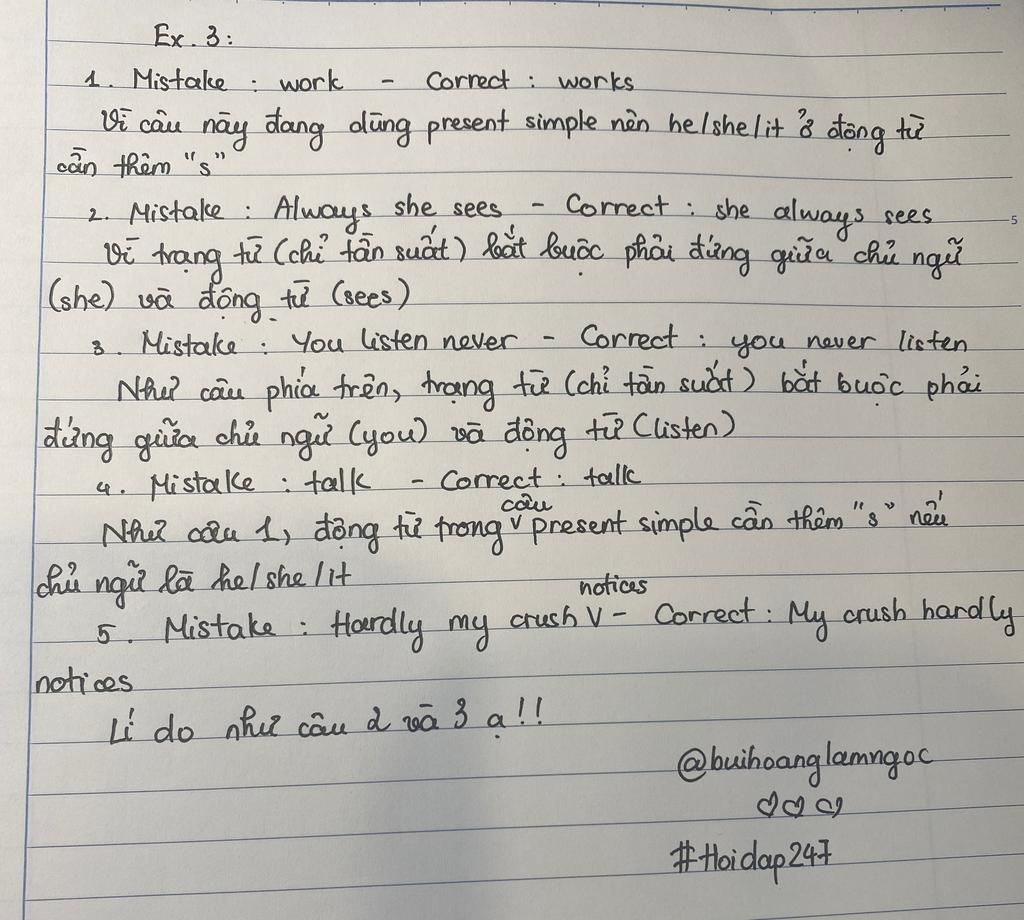 Ex. 3:
1. Mistake : work - Correct : works
Vì câu này đang dùng present simple nên he/she/it ở động từ
cần thêm "s"
2. Mistake : Always she sees - Correct : she always sees
5
Vì trạng từ (chỉ tần suất) bắt buộc phải đứng giữa chủ ngữ
(she) và động từ (sees)
3. Mistake : You listen never - Correct : you never listen
Như câu phía trên, trạng từ (chỉ tần suất) bắt buộc phải
đứng giữa chủ ngữ (you) và động từ (listen)
4. Mistake : talk - Correct : talk
Như câu 1, động từ trong câu present simple cần thêm "s" nếu
chủ ngữ là he/she/it
5. Mistake : Hardly my crush notices - Correct : My crush hardly
notices
Lí do như câu 2 và 3 ạ!!
@buihoanglamngoc
#Hoidap247